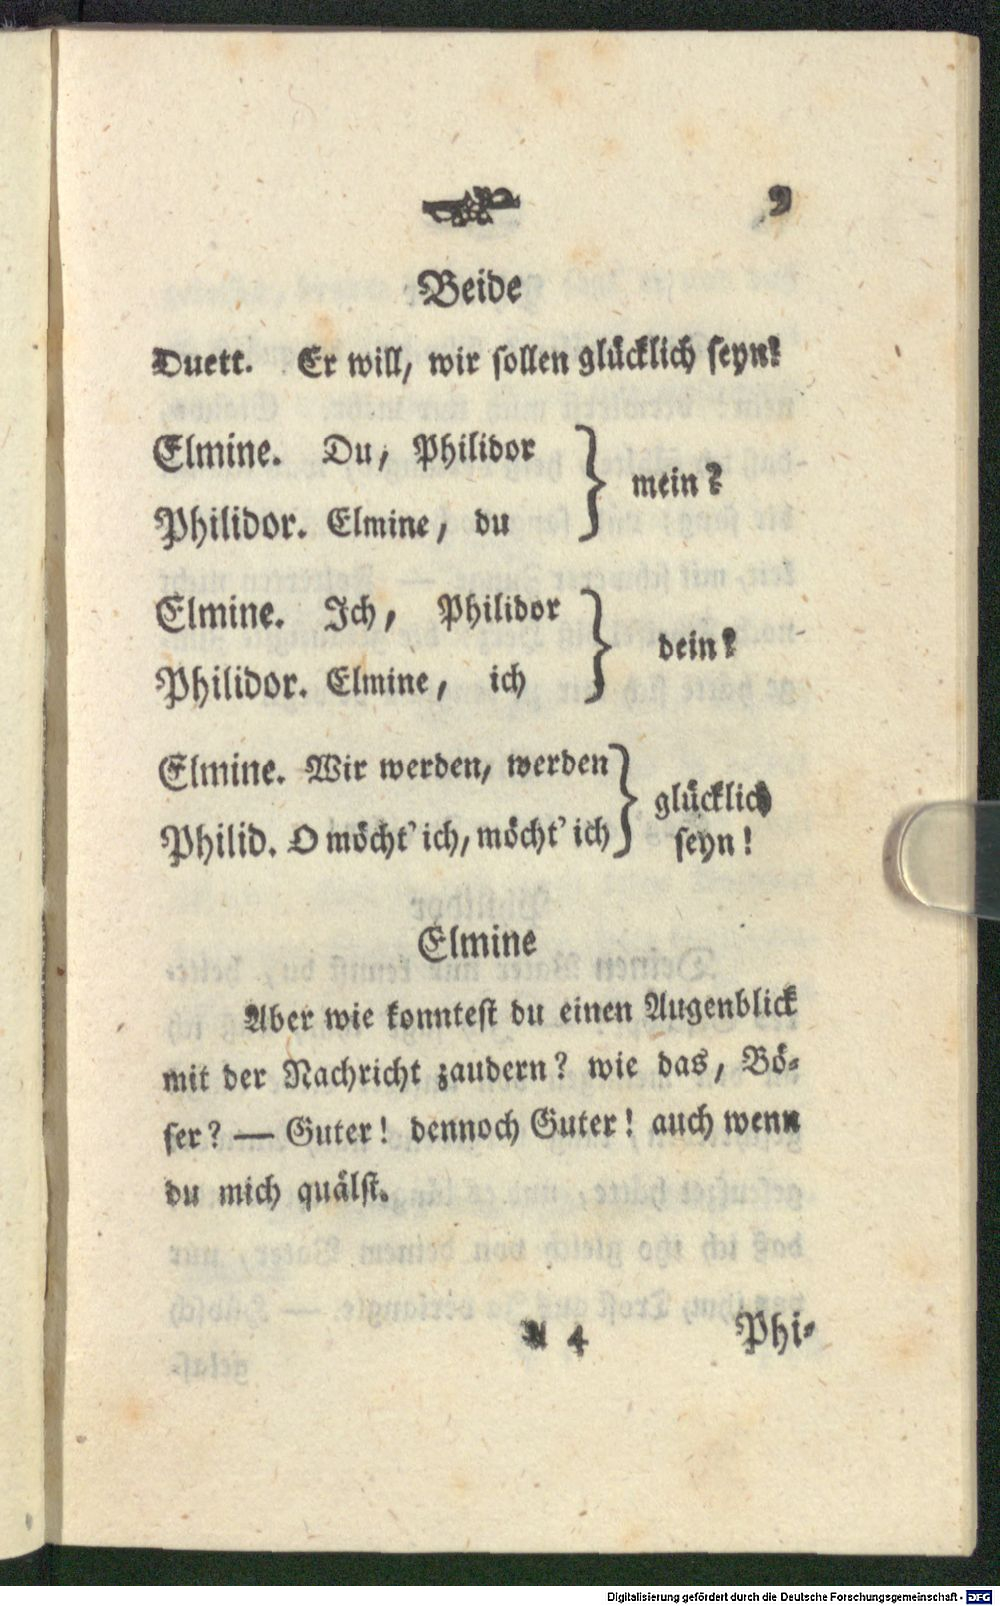 9
Beide
Duett. Er will, wir sollen glücklich seyn?
Elmine. Du, Philidor
mein?
Philidor. Elmine, du
Elmine. Ich, Philidor
dein?
Philidor. Elmine, ich
Elmine. Wir werden, werden
glücklich
Philid. O möcht' ich, möcht' ich
seyn!
Elmine
Aber wie konntest du einen Augenblick
mit der Nachricht zaudern? wie das, Bö-
ser? — Guter! dennoch Guter! auch wenn
du mich quälst.
4
Phi-
Digitalisierung gefördert durch die Deutsche Forschungsgemeinschaft - DFG